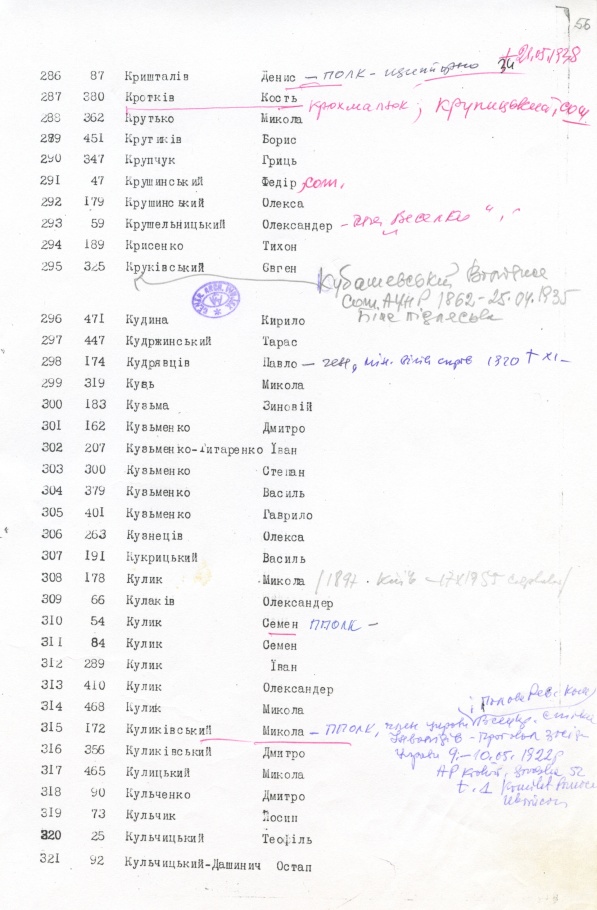 56
286 87 Кришталів Денис — ПОЛК - † 21.05.1938
34
287 380 Кротків Кость крохмалюк; Крупицький, сот
288 362 Крутько Микола
289 451 Крутиків Борис
290 347 Крупчук Гриць
291 47 Крушинський Федір, сот.
292 179 Крушинський Олекса
293 59 Крушельницький Олександер - "Веселка"
294 189 Крисенко Тихон
295 325 Круківський Євген
Кубашевський
Сот. АУНР 1862-25.04.1935
Біле Підляська
296 471 Кудина Кирило
297 447 Кудржинський Тарас
298 174 Кудрявців Павло — ген, мін. справ 1920 † XI-
299 319 Куць Микола
300 183 Кузьма Зиновій
301 162 Кузьменко Дмитро
302 207 Кузьменко-Титаренко Їван
303 300 Кузьменко Степан
304 379 Кузьменко Василь
305 401 Кузьменко Гаврило
306 263 Кузнеців Олекса
307 191 Кукрицький Василь
308 178 Кулик Микола /1897. Київ -17X1955
309 66 Кулаків Олександер
310 54 Кулик Семен ППОЛК —
311 84 Кулик Семен
312 289 Кулик Їван
313 410 Кулик Олександер
314 468 Кулик Микола
і Голова Рев. Ком
315 172 Куликівський Микола — ППОЛК, член управи
316 356 Куликівський Дмитро
Управи 9.-10.05.1922р
317 465 Кулицький Микола
52
318 90 Кульченко Дмитро
319 73 Кульчик Йосип
320 25 Кульчицький Теофіль
321 92 Кульчицький-Дашинич Остап